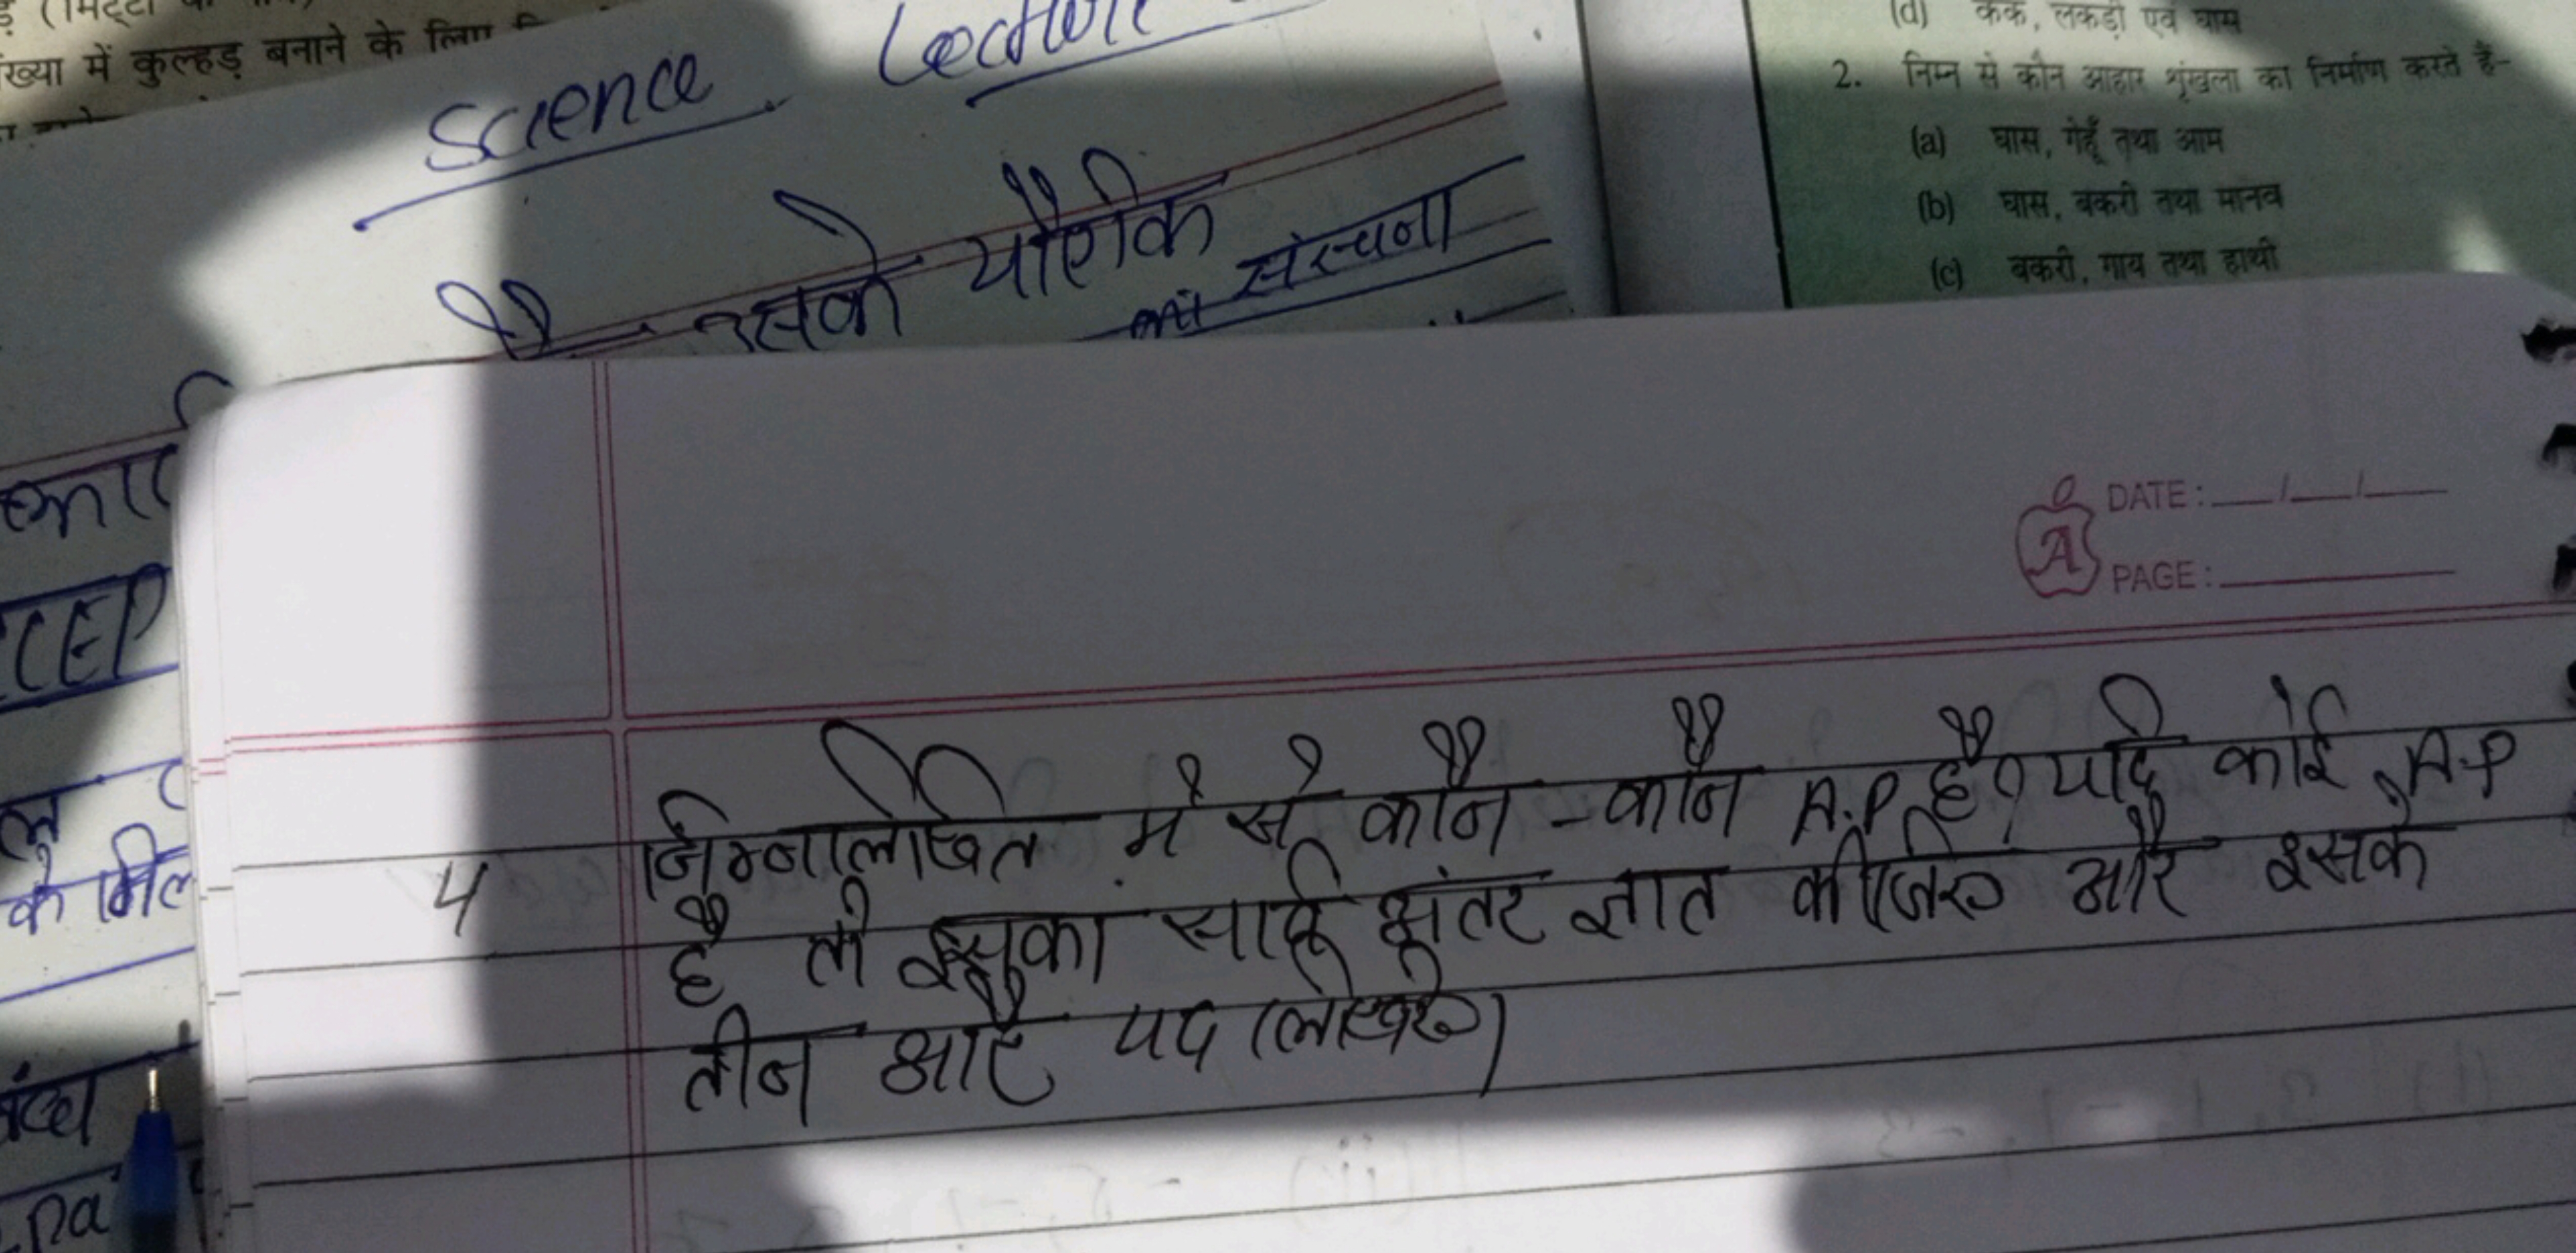 ख्या में कुल्हड़ बनाने के लिए
Science Lecture
है उसके यौगिक
की संरचना
(d) केक, लकड़ी एवं घास
2. निम्न से कौन आहार शृंखला का निर्माण करते हैं-
(a) घास, गेहूँ तथा आम
(b) घास, बकरी तथा मानव
(c) बकरी, गाय तथा हाथी
के मिल
DATE: / /
PAGE:
4 निम्नलिखित में से कौन-कौन A.P है? यदि कोई A.P
है तो इसका सार्व अंतर ज्ञात कीजिए और इसके
तीन और पद लिखिए।